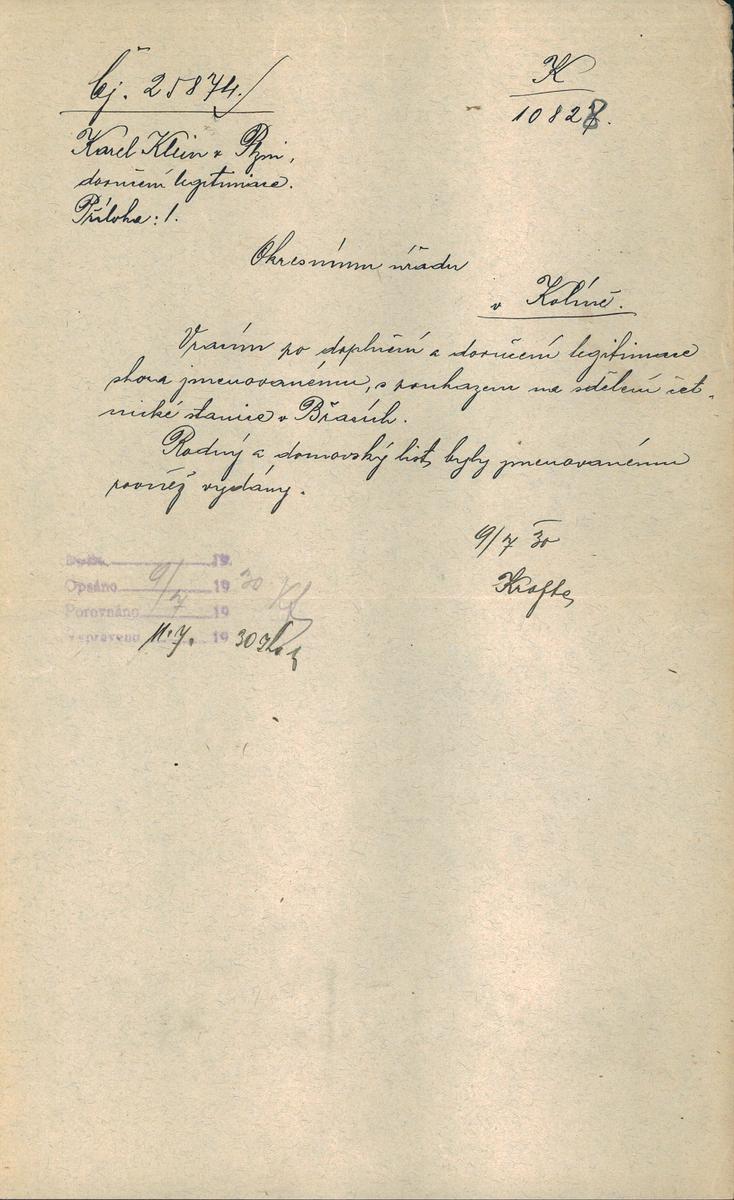 Čj. 25874./
K
10828.
Karel Klein v Plzni,
doručení legitimace.
Příloha: 1.
Okresnímu úřadu
v Kolíně.
Vracím po doplnění a doručení legitimace
shora jmenovanému, s poukazem na sdělení čet-
nické stanice v Břasích.
Rodný a domovský list byly jmenovanému
rovněž vydány.
9/7 30
Krofta
19
Opsáno 9/7 19 30
Porovnáno 19
Vypraveno 11.7. 19 30